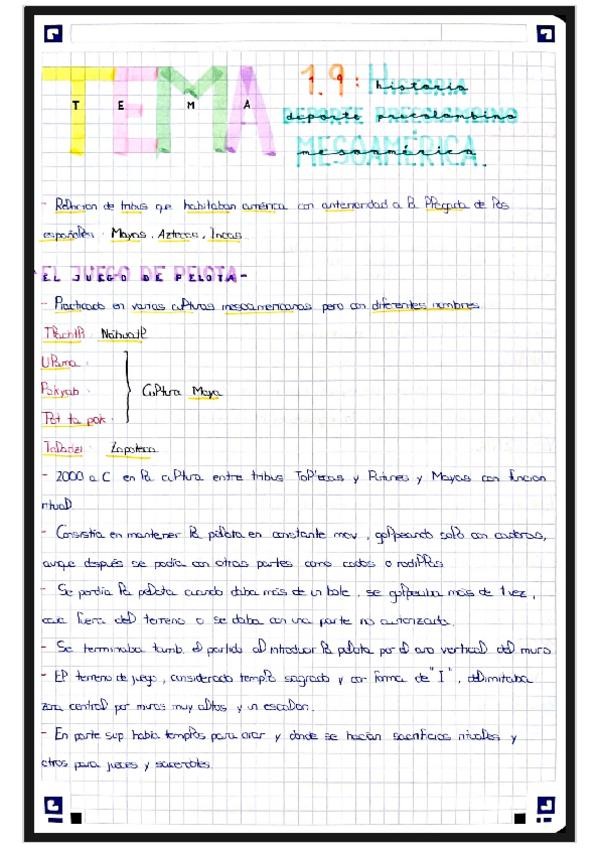 TEMA 1.9: Historia
deporte precolombino
mesoamérica.
- Relacion de tribus que habitaban américa con anterioridad a la llegada de los
españoles. Mayas, Aztecas, Incas
- EL JUEGO DE PELOTA -
- Practicado en varias culturas mesoamericanas pero con diferentes nombres
Tlachtli Nahuatl
Ulama.
Pokyab.
Pot ta pok.
Cultura Maya
Taladzi Zapoteca
- 2000 a.C en la cultura entre tribus Toltecas y Mayas con funcion
ritual
- Consistía en mantener la pelota en constante mov, golpeando solo con caderas,
aunque después se podía con otras partes como codos o rodillas
- Se perdía la pelota cuando daba más de un bote, se golpeaba más de 1 vez,
caía fuera del terreno o se daba con una parte no autorizada.
- Se terminaba tamb. el partido al introducir la pelota por el aro vertical del muro
- El terreno de juego, considerado templo sagrado y con forma de "I", delimitaba
zona central por muros muy altos y un escalon.
- En parte sup había templos para orar y donde se hacían sacrificios rituales y
otros para jueces y sacerdotes.